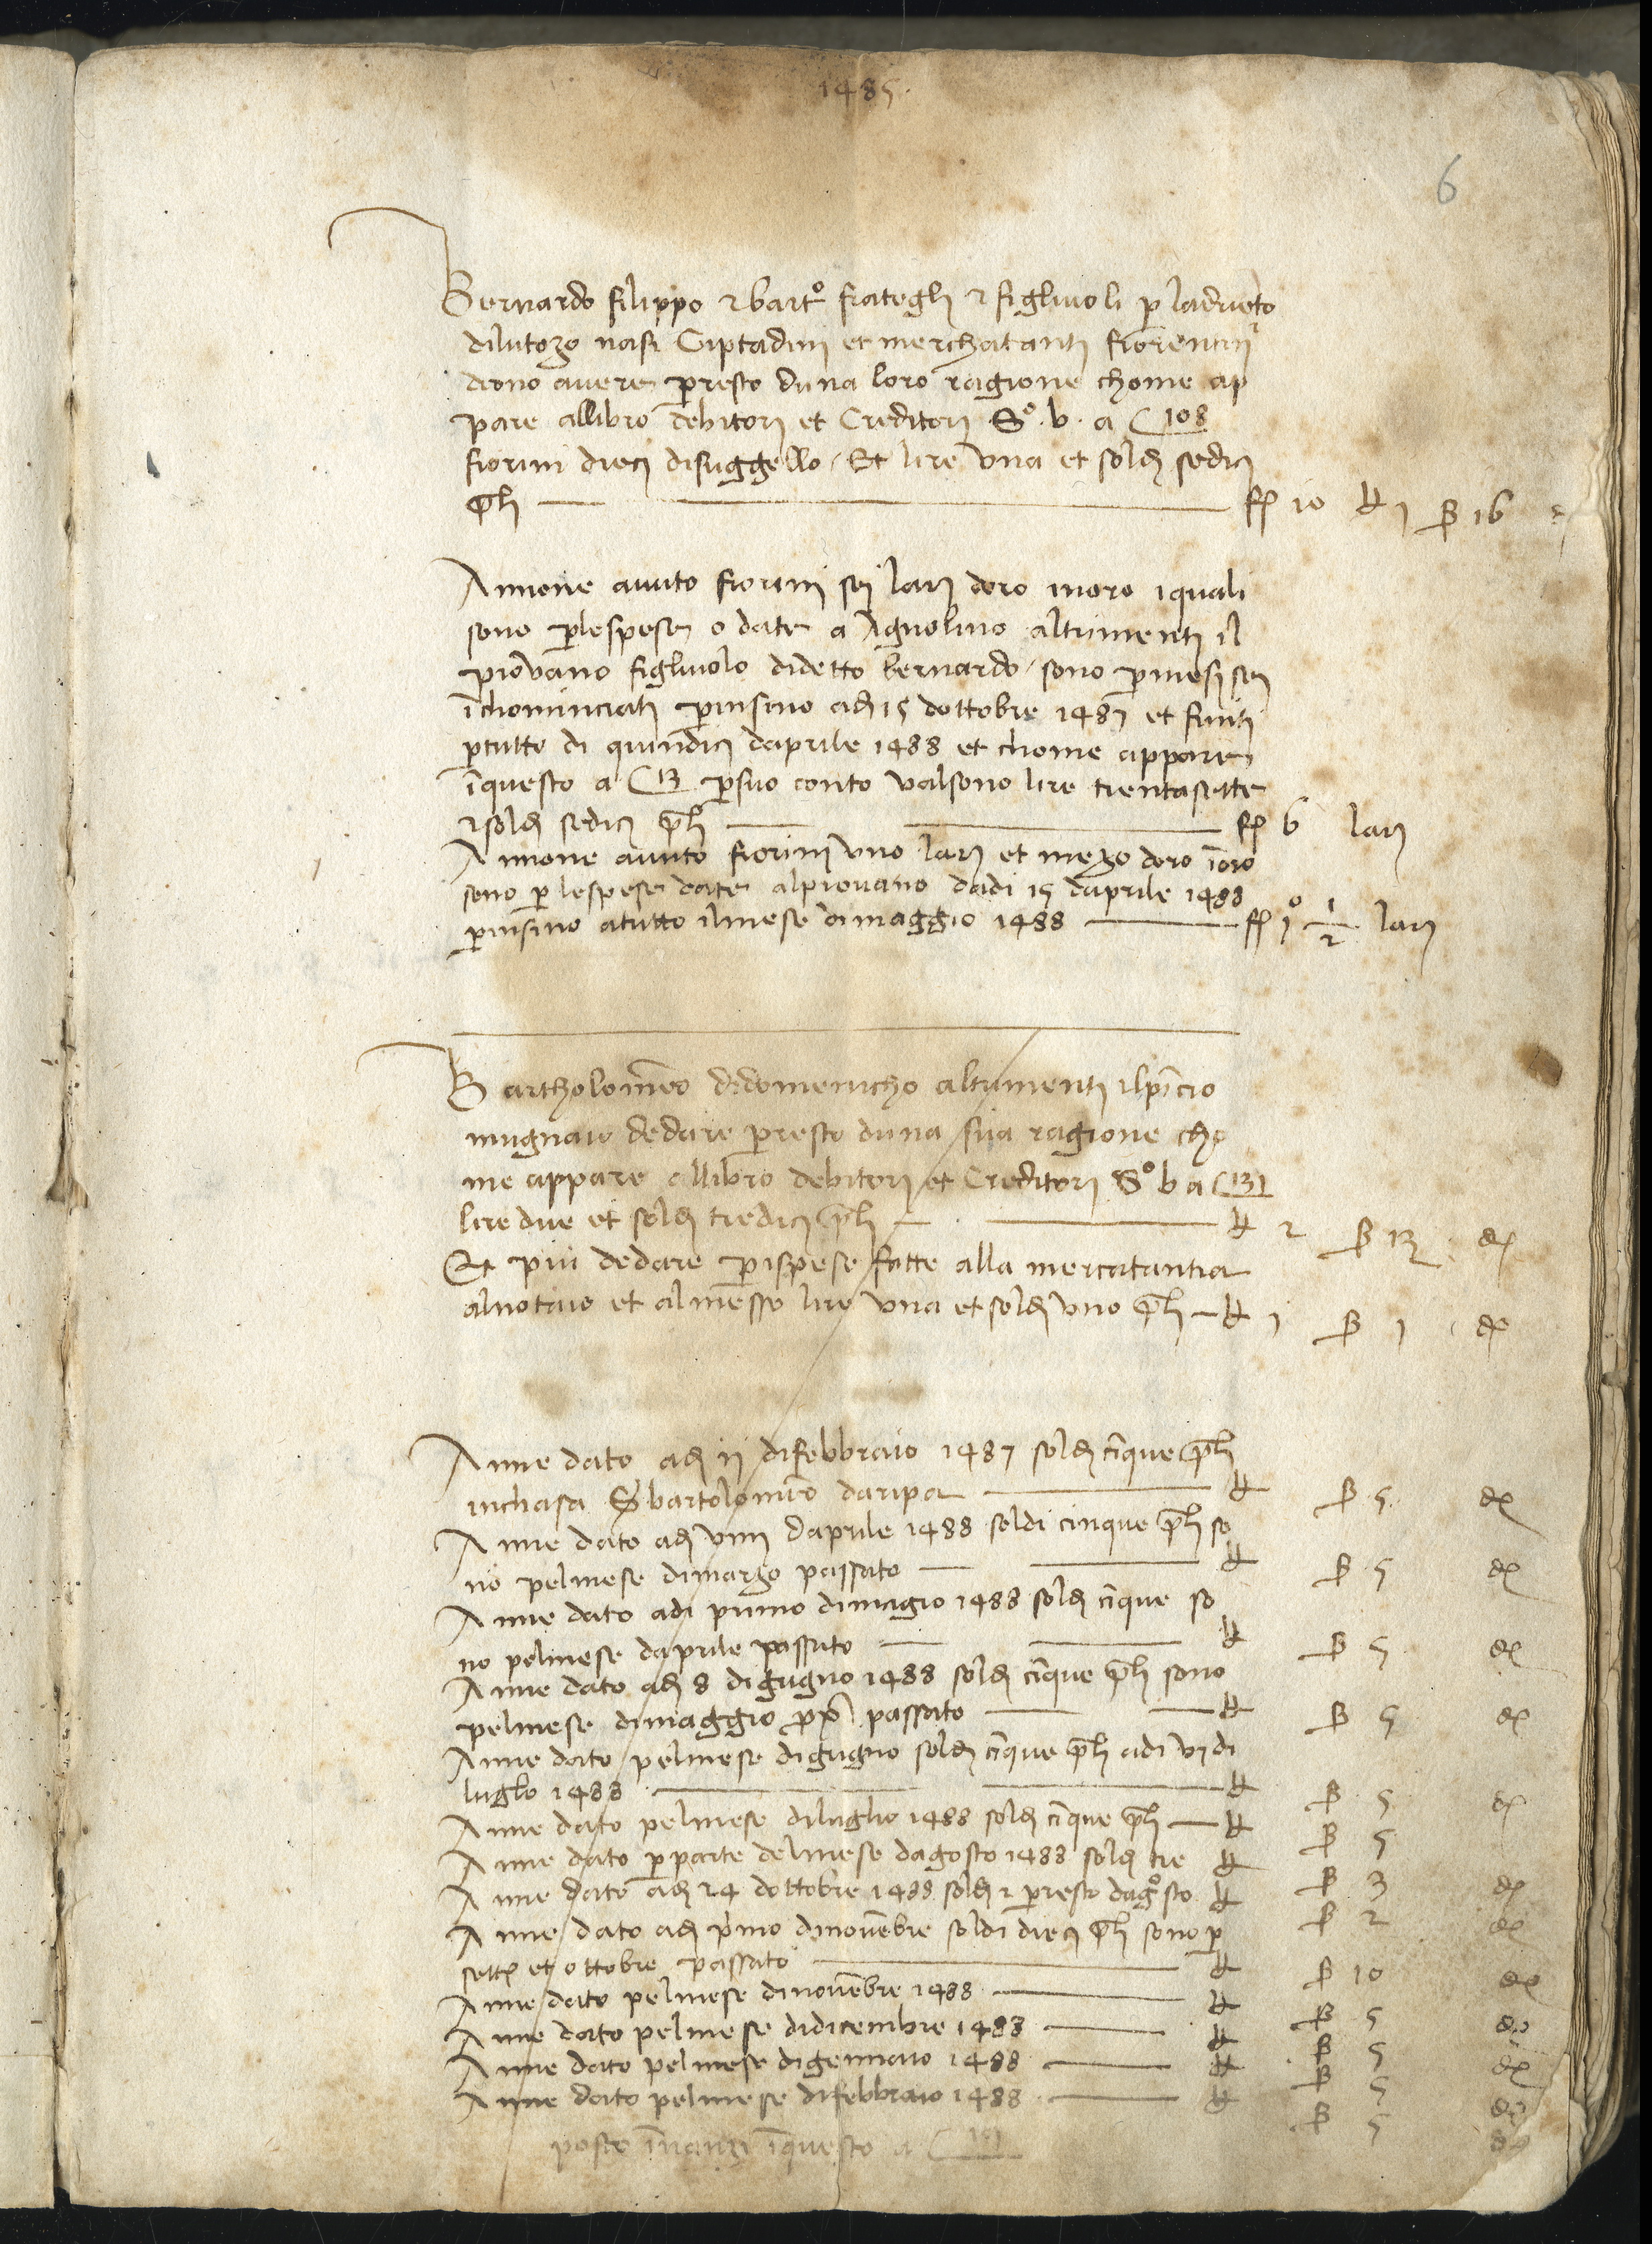 1485
6
Bernardo filippo et bart° frategli et figliuoli p ladrieto
dilutozo nasi Ciptadini et merchatanti fiorentini
deono avere presto duna loro ragione chome ap
pare allibro debitori et Creditori S° . b . a C 108
fiorini dieci disuggello / Et lire una et soldi sedici
pli — f 10 ₶ 1 ß 16
Annone avuto fiorini sei lari doro inoro iquali
sono plespese o date a Agnolino altrimenti il
piovano figliuolo didetto bernardo / sono pmesi sei
īchominciati pinsino adi 15 dottobre 1487 et finiti
ptutto di quindici daprile 1488 et chome appare
īquesto a C 13 psuo conto valsono lire trentasette
et soldi sedici pli — f 6 lari
Annone avuto fiorini uno lari et mezo doro īoro
sono p lespese date alpiovano dadi 15 daprile 1488
pinsino atutto ilmese dimaggio 1488 — f 1° 1/2 lari
Bartholomeo didomenicho altrimenti
mugnaio dedare presto duna sua ragione cho
me appare allibro debitori et Creditori S° b a C 131
lire due et soldi tredici pli — ₶ 2 ß 13 d
Et piu dedare pispese fatte alla mercatantia
alnotaio et almesso lire una et soldi uno pli — ₶ 1 ß 1 d
Anne dato adi 11 difebbraio 1487 soldi cīque pli
inchasa S bartolomeo daripa — ₶ ß 5 d
Anne dato adi viiii daprile 1488 soldi cinque pli so
no pelmese dimarzo passato — ₶ ß 5 d
Anne dato adi primo dimagio 1488 soldi cīque so
no pelmese daprile passato — ₶ ß 5 d
Anne dato adi 8 digugno 1488 soldi cīque pli sono
pelmese dimaggio pp° passato — ₶ ß 5 d
Anne dato pelmese digugno soldi cīque pli adi vj di
luglo 1488 — ₶ ß 5 d
Anne dato pelmese diluglio 1488 soldi cīque pli — ₶ ß 5
Anne dato pparte delmese dagosto 1488 soldi tre ₶ ß 3 d
Anne dato adi 24 dottobre 1488 soldi 2 presto dagosto ₶ ß 2 d
Anne dato adi primo dinovēbre soldi dieci pli sono p
sett et ottobre passato — ₶ ß 10 d
Anne dato pelmese dinovēbre 1488 — ₶ ß 5 d
Anne dato pelmese didicembre 1488 — ₶ ß 5 d
Anne dato pelmese digennaio 1488 — ₶ ß 5 d
Anne dato pelmese difebbraio 1488 — ₶ ß 5 d
poste īnanzi īquesto a C